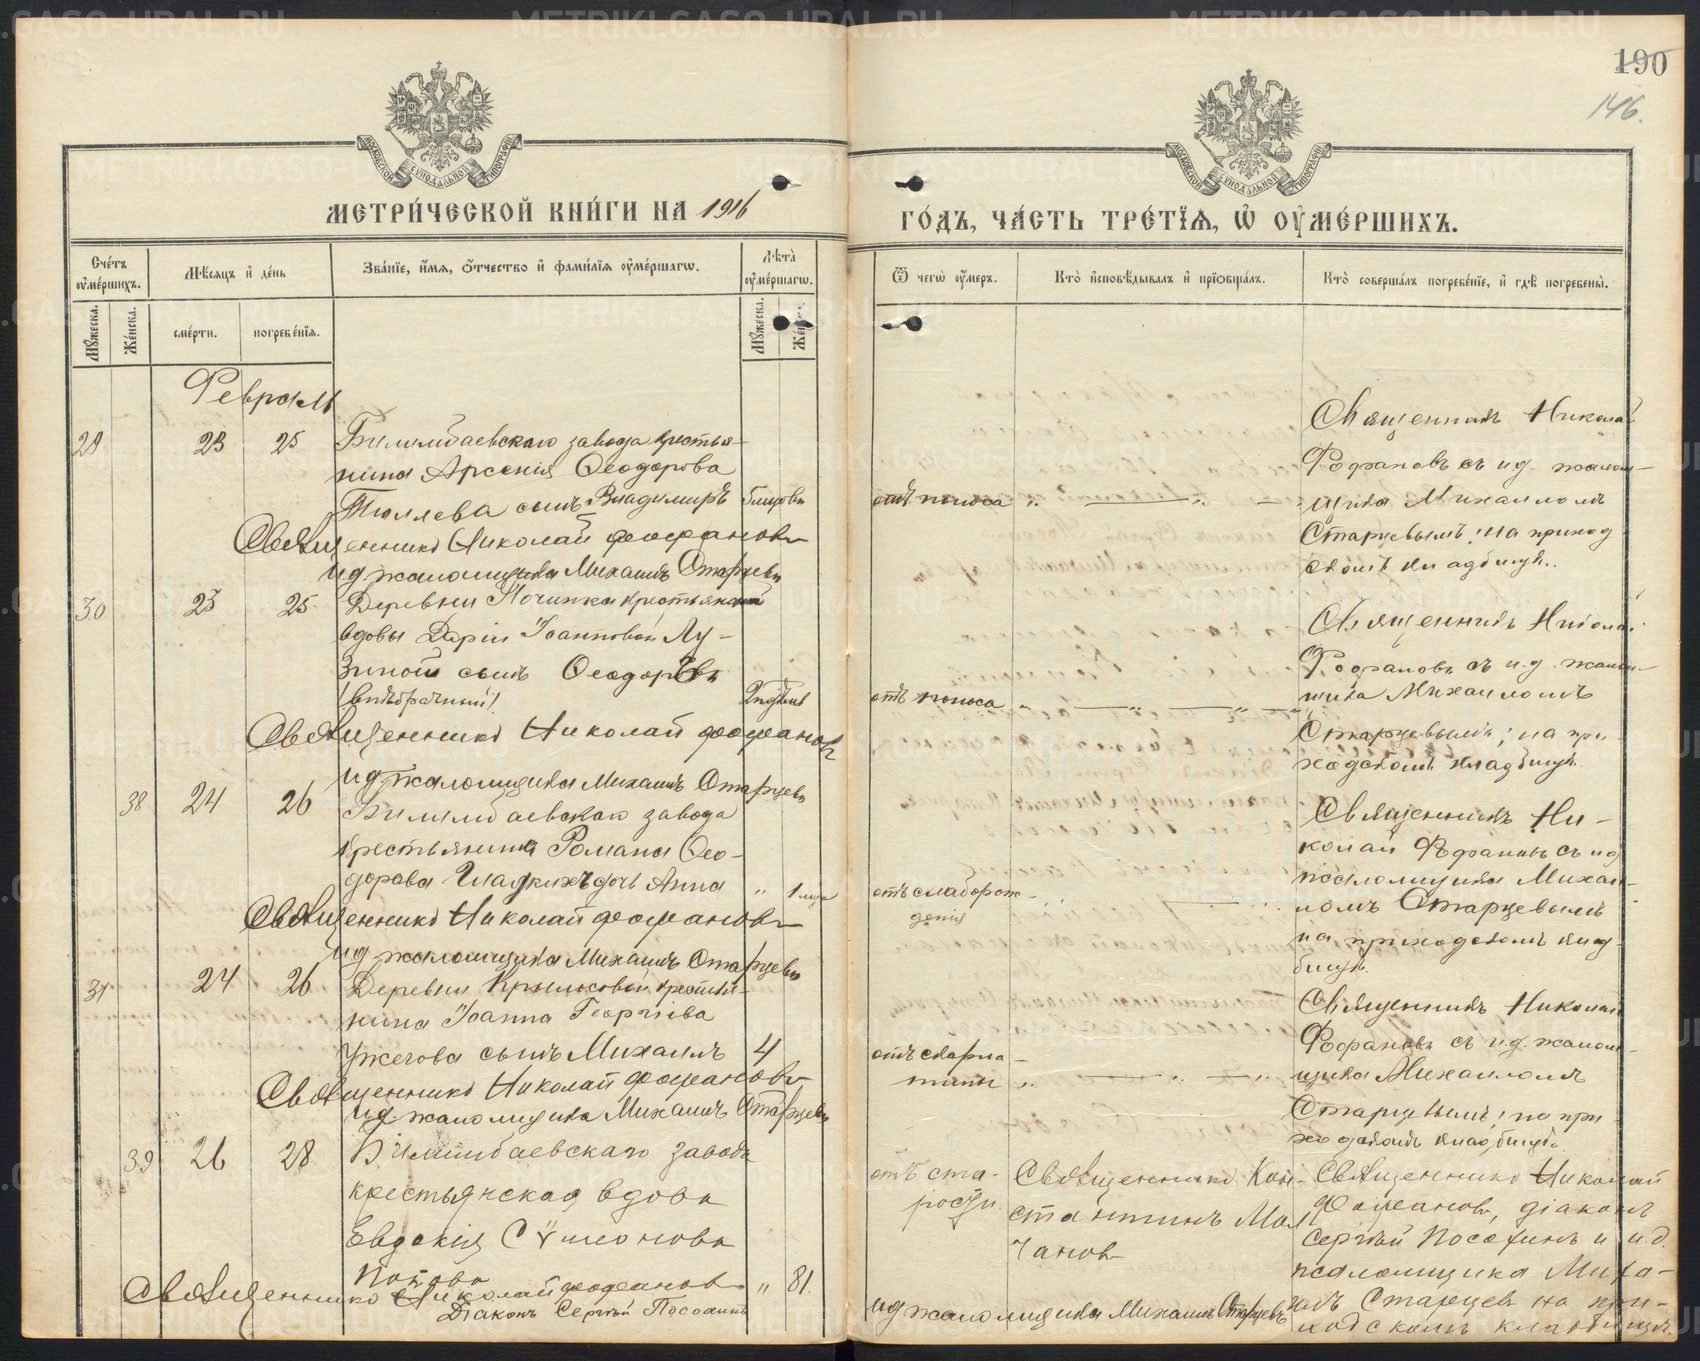 190
146.
МОСКОВСКОЙ СѴНОДАЛЬНОЙ ТИПОГРАФІИ
МОСКОВСКОЙ СѴНОДАЛЬНОЙ ТИПОГРАФІИ
МЕТРИ́ЧЕСКОЙ КНИ́ГИ НА 1916
ГО́ДЪ, ЧА́СТЬ ТРЕ́ТЇѦ, Ѽ ОУ҆МЕ́РШИХЪ.
Счетъ оумершихъ.
Мѣсяцъ и день
Званїе, имя, отчество и фамилїя оумершагѡ.
Лѣта оумершагѡ.
Ѿ чегѡ оумеръ.
Кто исповѣдывалъ и прїѡбщалъ.
Кто совершалъ погребенїе, и гдѣ погребены.
Мужеска.
Женска.
смерти.
погребенїя.
Мужеска.
Женска.
Февраль
29 23 25 Билимбаевскаго завода крестья-
нина Арсенія Ѳеодорова
Тюляева сынъ Владимиръ
отъ поноса
Священникъ Николай
Фофановъ съ и.д. псалом-
щика Михаиломъ
Старцевымъ; на приход
скомъ кладбищѣ.
Священникъ Николай Фофановъ
и д псаломщика Михаилъ Старцевъ
30 23 25 Деревни Починка крестьянской
вдовы Даріи Іоанновой Лу-
зиной сынъ Ѳеодоръ
(внѣбрачный)
отъ поноса
Священникъ Николай
Фофановъ съ и.д. псалом-
щика Михаиломъ
Старцевымъ; на при-
ходскомъ кладбищѣ.
Священникъ Николай Фофановъ
и д псаломщика Михаилъ Старцевъ
38 24 26 Билимбаевскаго завода
крестьянина Романа Ѳео-
дорова Гладкихъ дочь Анна " 1
отъ слаборож-
денія
Священникъ Ни-
колай Фофановъ съ и д
псаломщика Михаи-
ломъ Старцевымъ
на приходскомъ клад
бищѣ.
Священникъ Николай Фофановъ
и д псаломщика Михаилъ Старцевъ
31 24 26 Деревни Крылосовой крестья-
нина Іоанна Георгіева
Ужегова сынъ Михаилъ 4
отъ скарла-
тины
Священникъ Николай
Фофановъ съ и.д. псалом-
щика Михаиломъ
Старцевымъ; на при
ходскомъ кладбищѣ.
Священникъ Николай Фофановъ
и д. псаломщика Михаилъ Старцевъ
39 26 28 Билимбаевскаго завода
крестьянская вдова
Евдокія Сѵмеонова
Попова " 81.
отъ ста-
рости.
Священникъ Кон-
стантинъ Мол
чановъ
Священникъ Николай
Фофановъ, діаконъ
Сергѣй Пософинъ и и.д.
псаломщика Миха-
илъ Старцевъ на при-
ходскомъ кладбищѣ.
Священникъ Николай Фофановъ
Діаконъ Сергѣй
и д псаломщика Михаилъ Старцевъ
METRIKI.GASO-URAL.RU